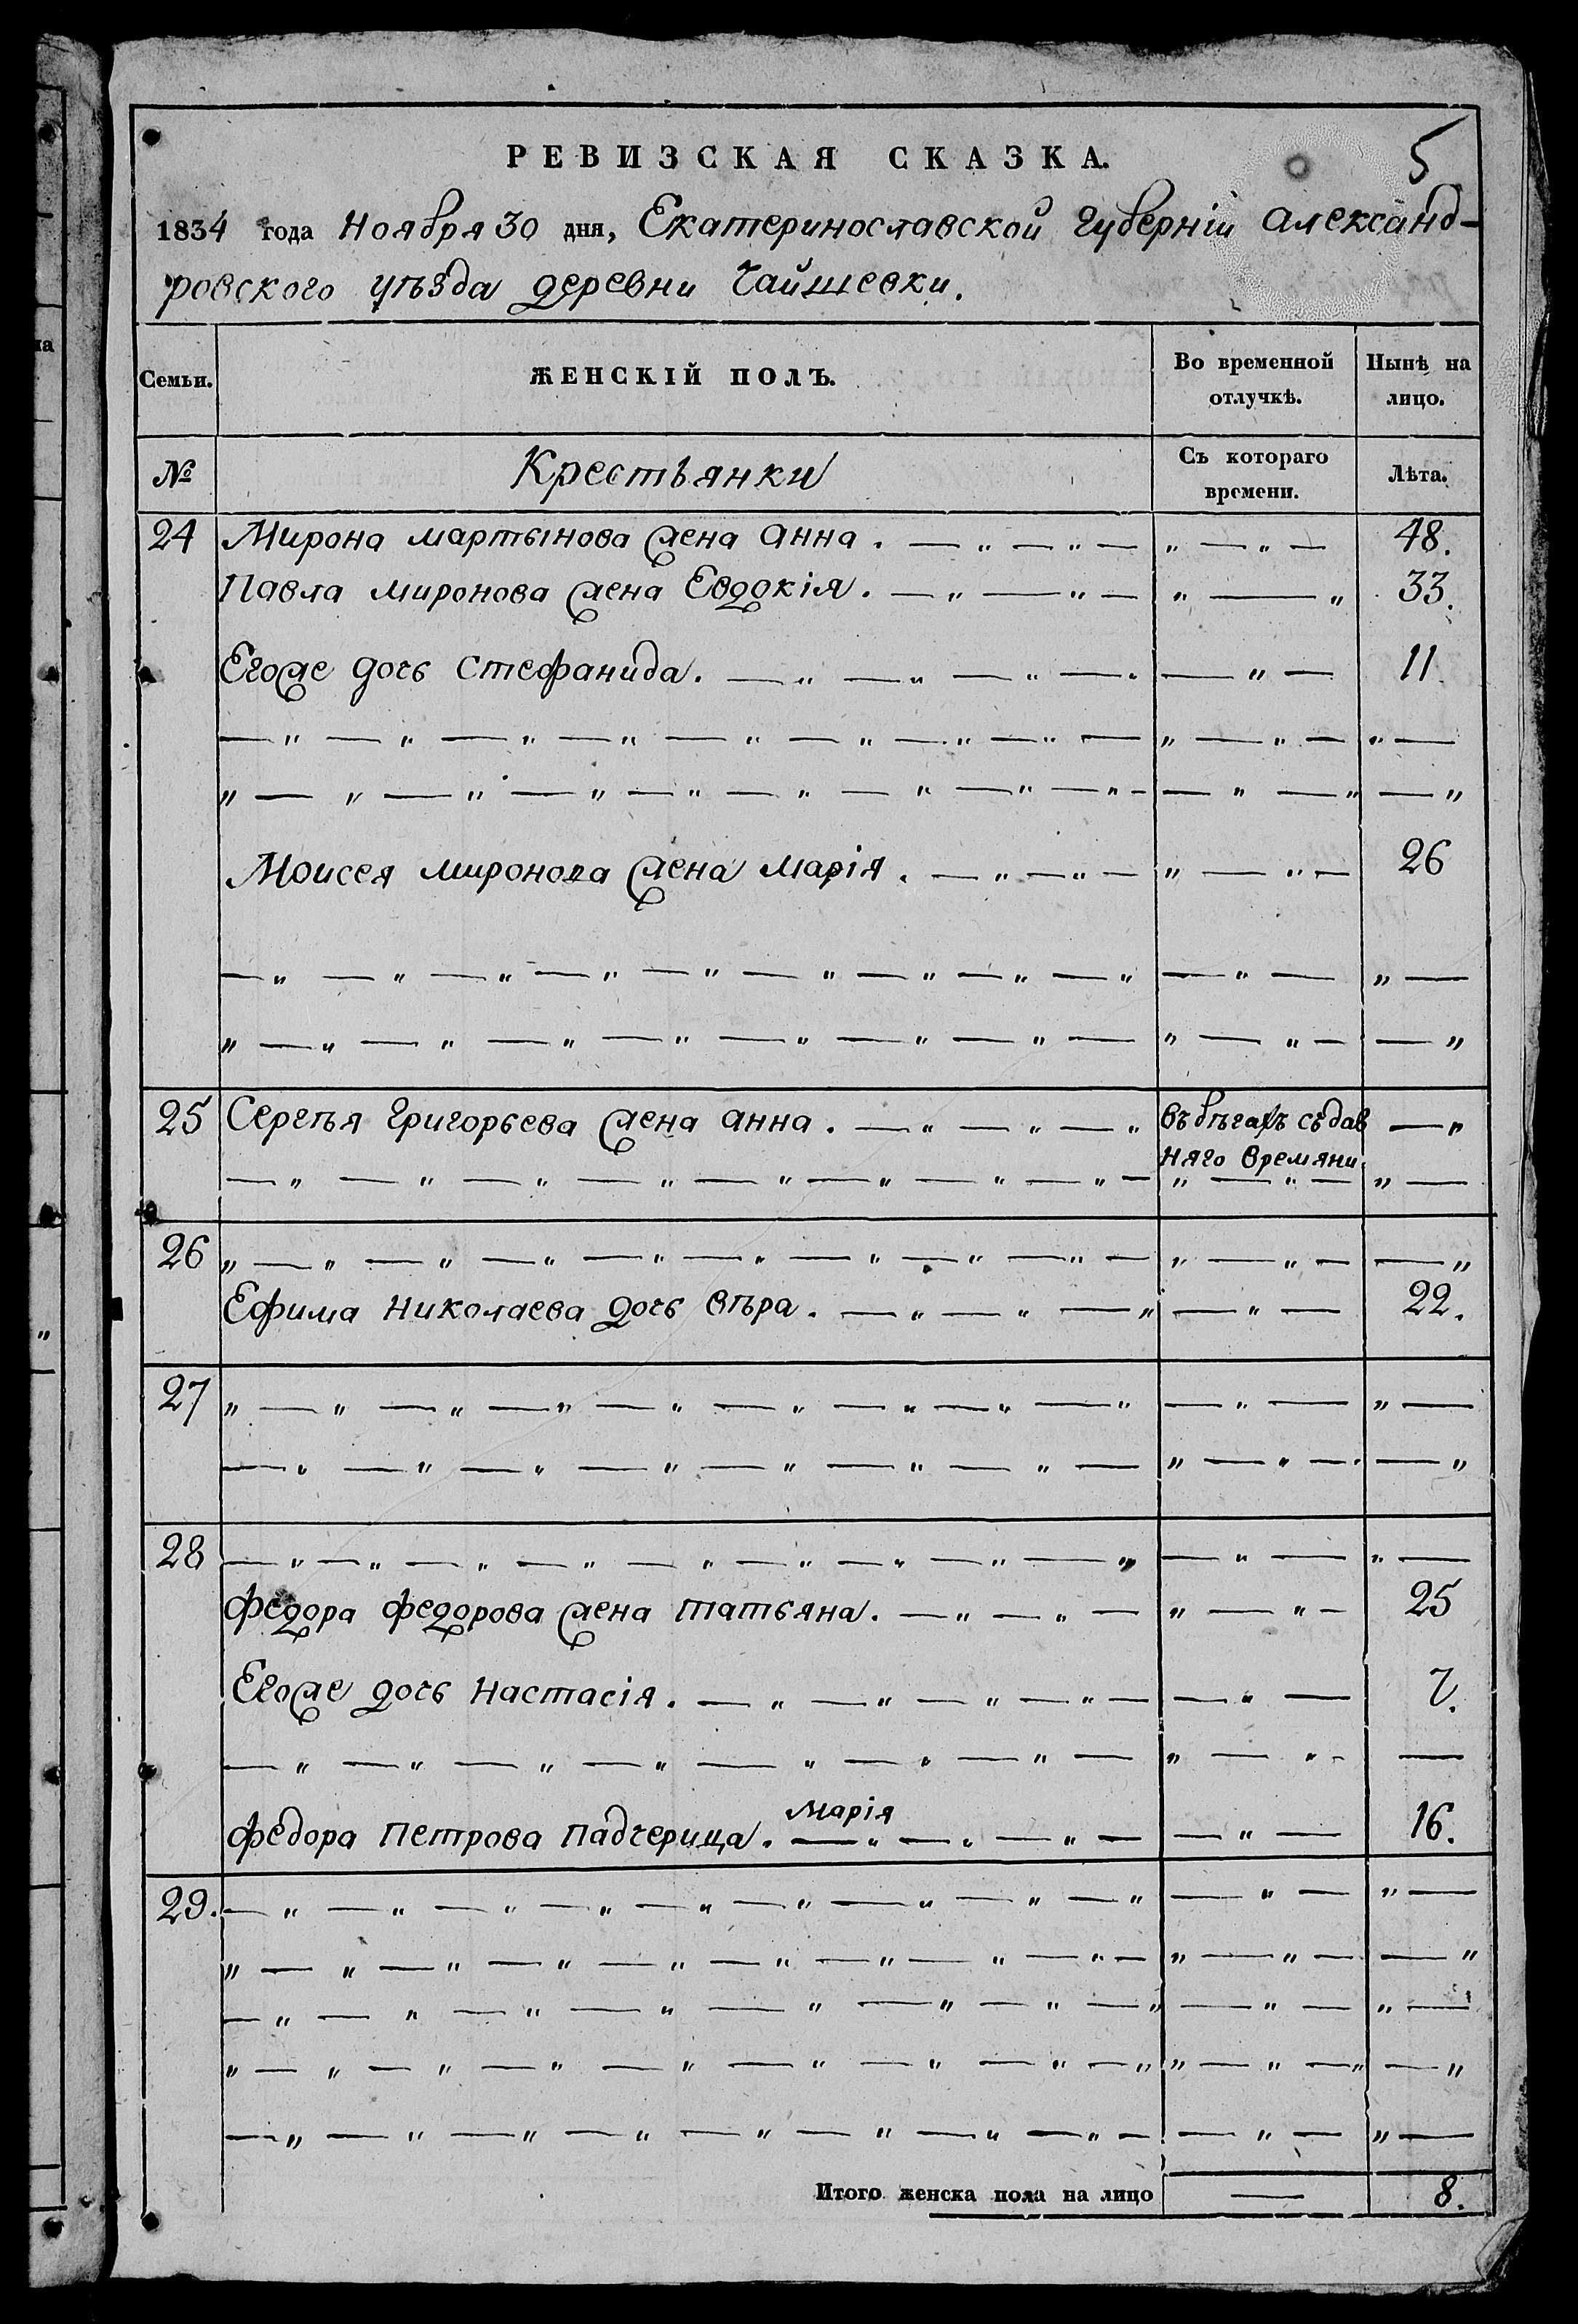 5
РЕВИЗСКАЯ СКАЗКА.
1834 года Ноября 30 дня, Екатеринославской губерніи Александ-
ровского уѣзда деревни
Семьи. ЖЕНСКІЙ ПОЛЪ. Во временной отлучкѣ. Нынѣ на лицо.
№ Крестьянки Съ котораго времени. Лѣта.
24 Мирона Мартынова жена Анна. — „ — „ — „ — „ — 48.
Павла Миронова жена Евдокія. — „ — „ — „ — „ 33.
Егоже дочь Стефанида. — „ — „ — „ — „ — „ — 11.
— „ — „ — „ — „ — „ — „ — „ — „ — „ — „ — „ —
„ — „ — „ — „ — „ — „ — „ — „ — „ — — „ — „ — „
Моисея Миронова жена Марія. — „ — „ — „ — „ — 26
— „ — „ — „ — „ — „ — „ — „ — „ — „ — „ — „ —
„ — „ — „ — „ — „ — „ — „ — „ — „ — „ — — „
25 Сергѣя Григорьева жена Анна. — „ — „ — „ въ бѣгахъ съ дав — „
няго времяни
— „ — „ — „ — „ — „ — „ — „ — „ — „ — „ — „ —
26 „ — „ — „ — „ — „ — „ — „ — „ — „ — „ — „ — — „
Ефима Николаева дочь Вѣра. — „ — „ — „ — „ — 22.
27 „ — „ — „ — „ — „ — „ — „ — „ — „ — „ — „ —
— „ — „ — „ — „ — „ — „ — „ — „ — „ — — „
28 — „ — „ — „ — „ — „ — „ — „ — „ — „ — „ — „ —
Федора Федорова жена Татьяна. — „ — „ — „ — „ — 25
Егоже дочь Настасія. — „ — „ — „ — „ — — „ — 7.
— „ — „ — „ — „ — „ — „ — „ — „ — „ — —
Марія
Федора Петрова падчерица. — „ — „ — „ — — „ — 16.
29. — „ — „ — „ — „ — „ — „ — „ — „ — „ — „ — „ —
„ — „ — „ — „ — „ — „ — „ — „ — „ — „ — „ — — „
— „ — „ — „ — „ — „ — „ — „ — „ — „ — „ — „ —
„ — „ — „ — „ — „ — „ — „ — „ — „ „ — „ — „ — „
— „ — „ — „ — „ — „ — „ — „ — „ — — „ — „ —
Итого женска пола на лицо — 8.